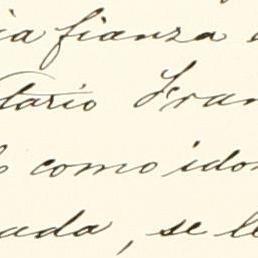 ia fianza
tario Fran
como idon
ada, se le